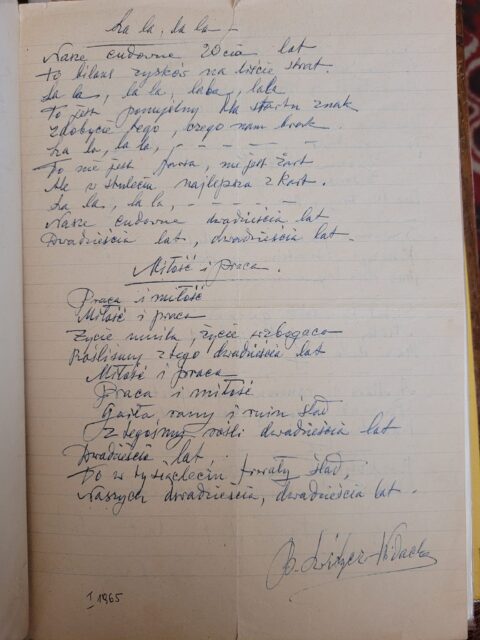 La la, la la –
Nasze cudowne 20cia lat
To bilans zysków na liście strat.
La la, la la, lala, lala
To jest pomyślny dla startu znak
Zdobycie tego, czego nam brak.
La la, la la, – – – – – –
To nie jest farsa, nie jest żart
Ale w stuleciu najlepsza z kart.
La la, la la, – – – – – –
Nasze cudowne dwadzieścia lat
Dwadzieścia lat, dwadzieścia lat.
Miłość i praca.
Praca i miłość
Miłość i praca
Życie umila, życie wzbogaca
Rośliśmy z tego dwadzieścia lat
Miłość i praca
Praca i miłość
rany i ruin ślad
Z tegośmy rośli dwadzieścia lat
Dwadzieścia lat,
To w tysiącleciu trwały ślad,
Naszych dwadzieścia, dwadzieścia lat.
I 1965